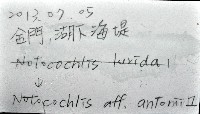 2013.07.05
金門,湖下海堤
Notocochlis lurida 1
↓
Notocochlis aff. antonii II